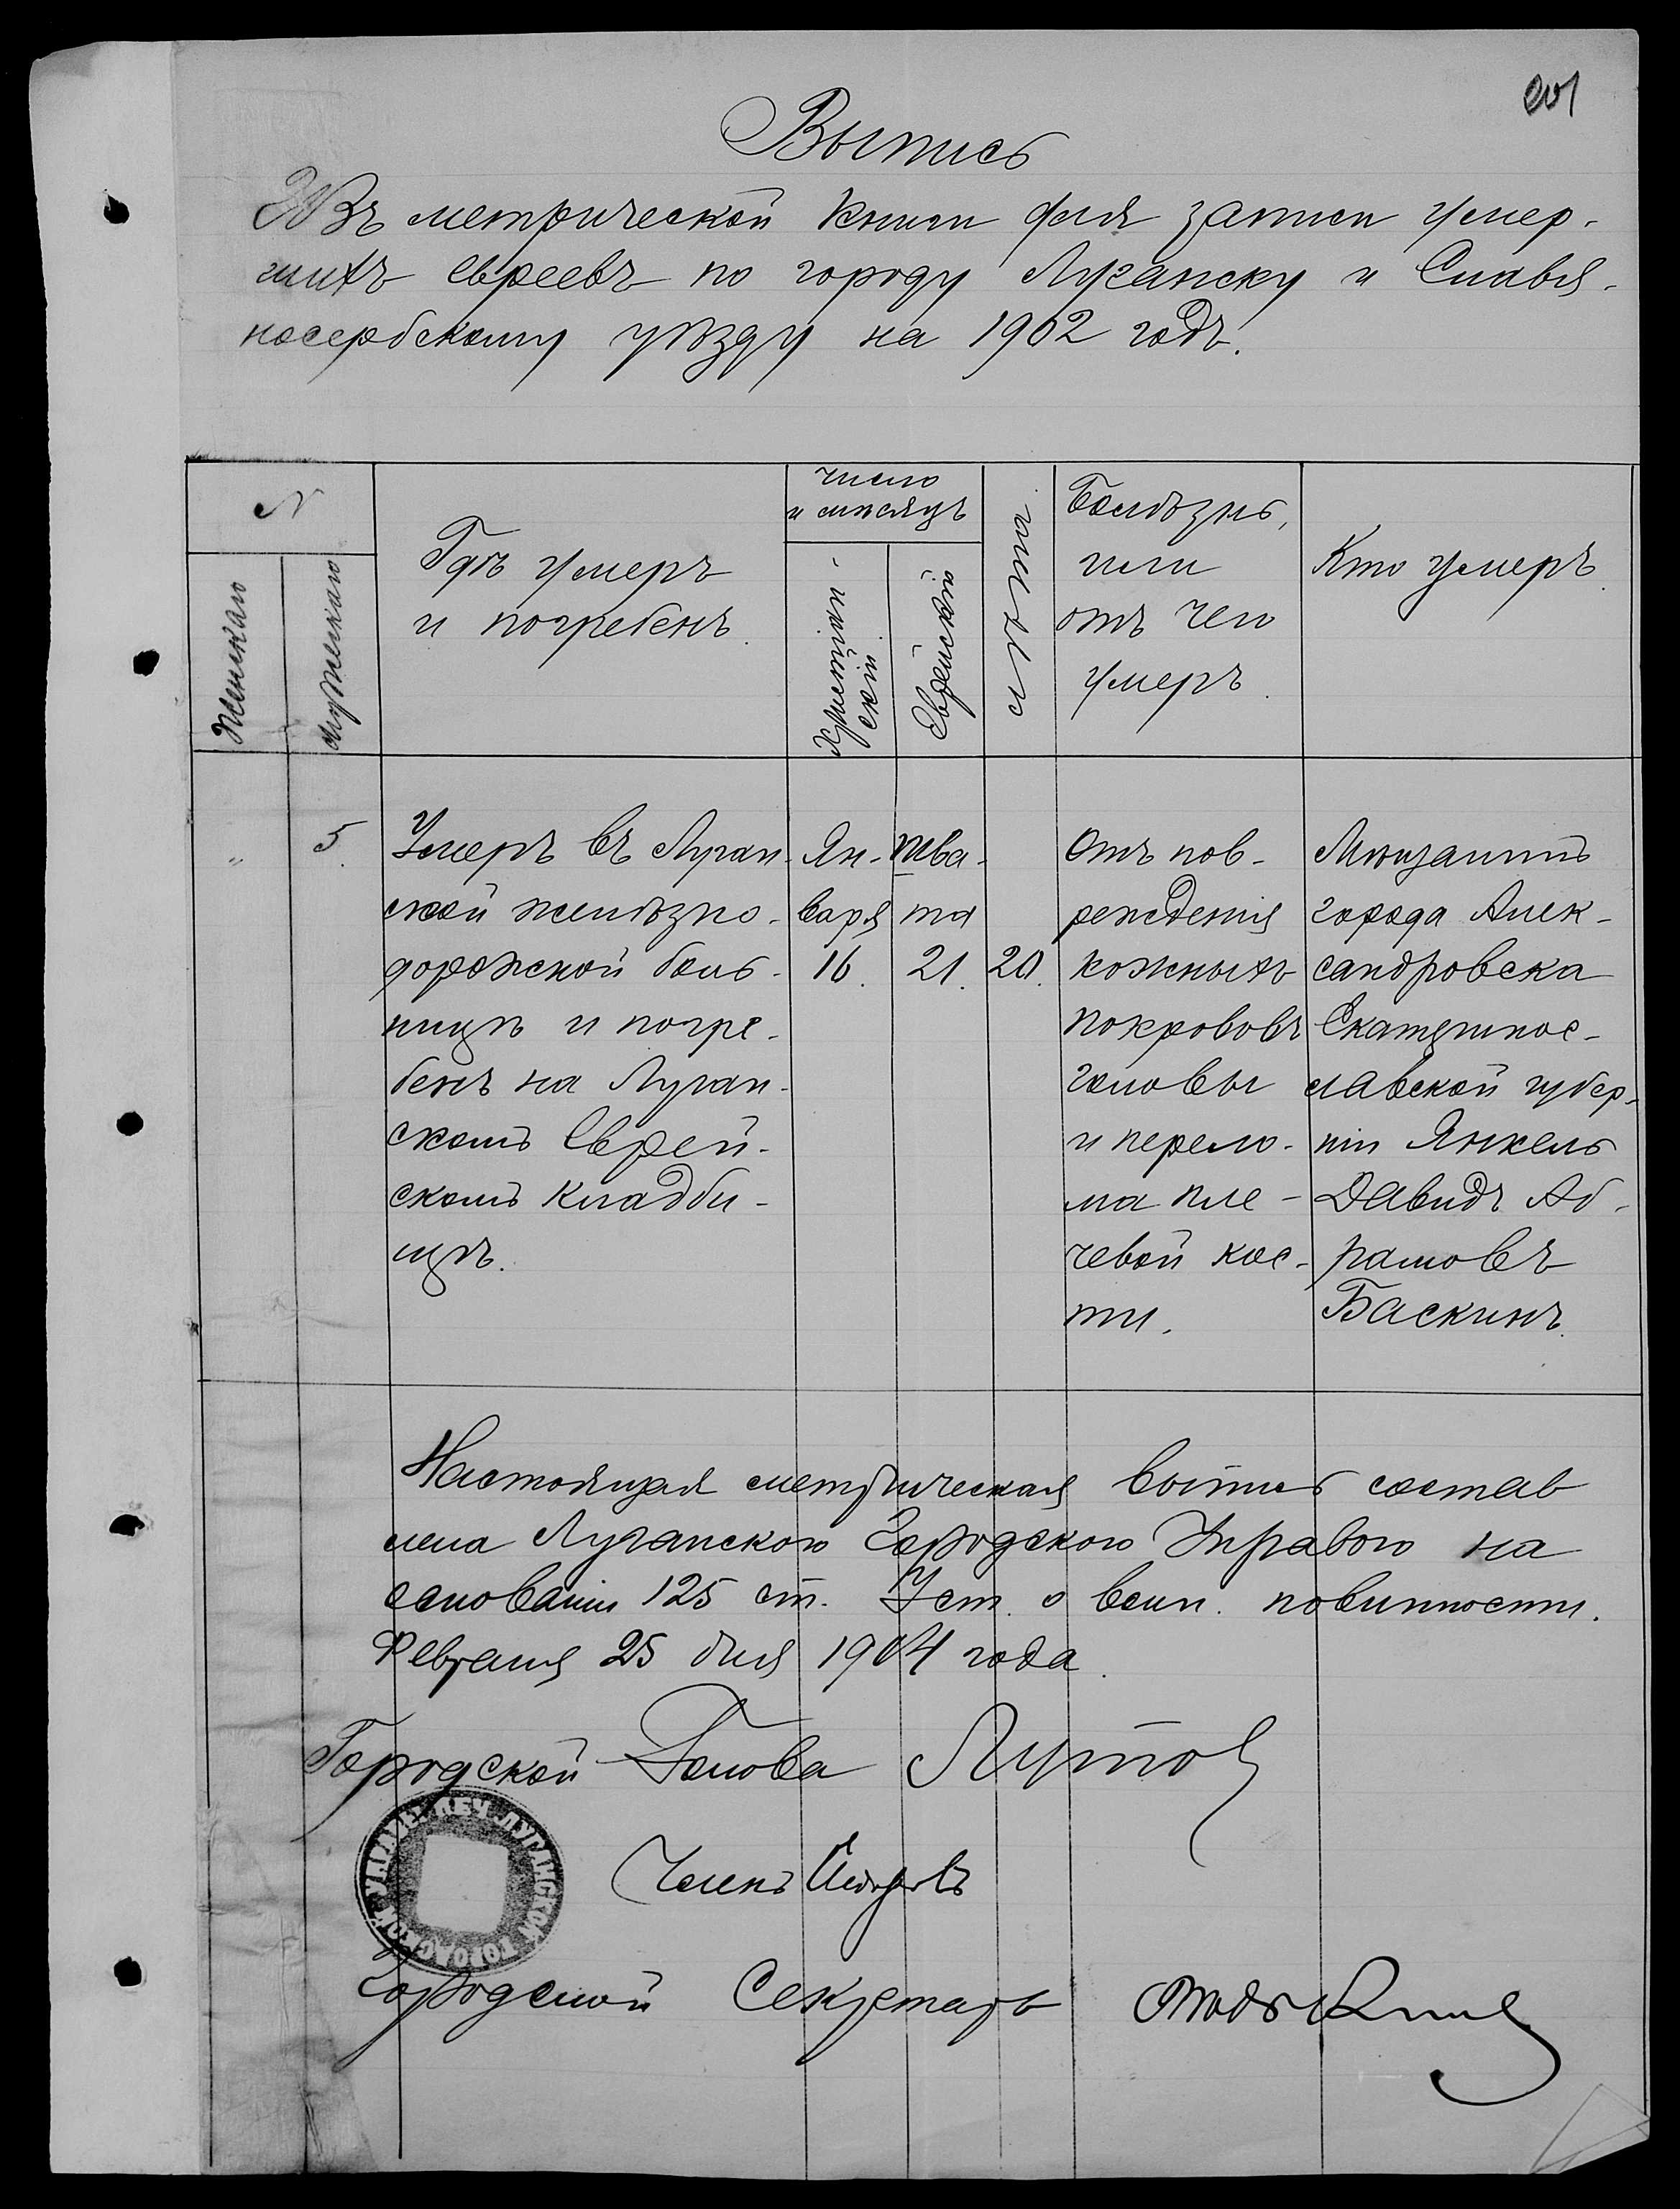 201
Выпись
Изъ метрической книги для записи умер-
шихъ евреевъ по городу Луганску и Славя-
носербскому уѣзду на 1902 годъ.
№
Женскаго
Мужескаго
Гдѣ умеръ
и погребенъ.
Число
и мѣсяцъ
Христіан-
скій
Еврейскій
Лѣта
Болѣзнь,
или
отъ чего
умеръ.
Кто умеръ.
"
5.
Умеръ въ Луган-
ской желѣзно-
дорожной боль-
ницѣ и погре-
бенъ на Луган-
скомъ Еврей-
скомъ кладби-
щѣ.
Ян-
варя
16.
Шва-
та
21.
20.
Отъ пов-
режденія
кожныхъ
покрововъ
головы
и перело-
ма пле-
чевой кос-
ти.
Мѣщанинъ
города Алек-
сандровска
Екатеринос-
лавской губер-
ніи Янкель
Давидъ Аб-
рамовъ
Баскинъ.
Настоящая метрическая выпись состав
лена Луганскою Городскою Управою на
основаніи 125 ст. Уст. о воин. повинности.
Февраля 25 дня 1904 года.
Городской Голова
Членъ
Городской Секретарь
ПЕЧ. ЛУГАНСКОЙ ГОРОДСКОЙ УПРАВЫ